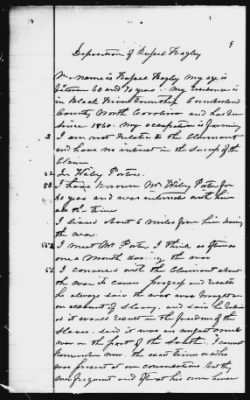 9
Deposition of
My name is
between 60 and 70 years. My residence is
in Black River Township Cumberland
County North Carolina and has been
since 1860. My occupation is farming
2 I am not related to the claimant
and have no interest in the success of the
Claim
Wiley Porter
I have known Mr Wiley Porter for
30 years and was intimate with him
all the time
I lived about 6 miles from him during
the war
I meet Mr Porter I think as often as
once a month during the war
I conversed with the Claimant about
the war its causes progress and results
he always said the war was brought on
on account of slavery, and said he believed
it would result in the freedom of the
slaves. said it was an unjust
war on the part of the South. I cannot
remember now the exact times or who
was present at our conversations but they
were frequent and often his own